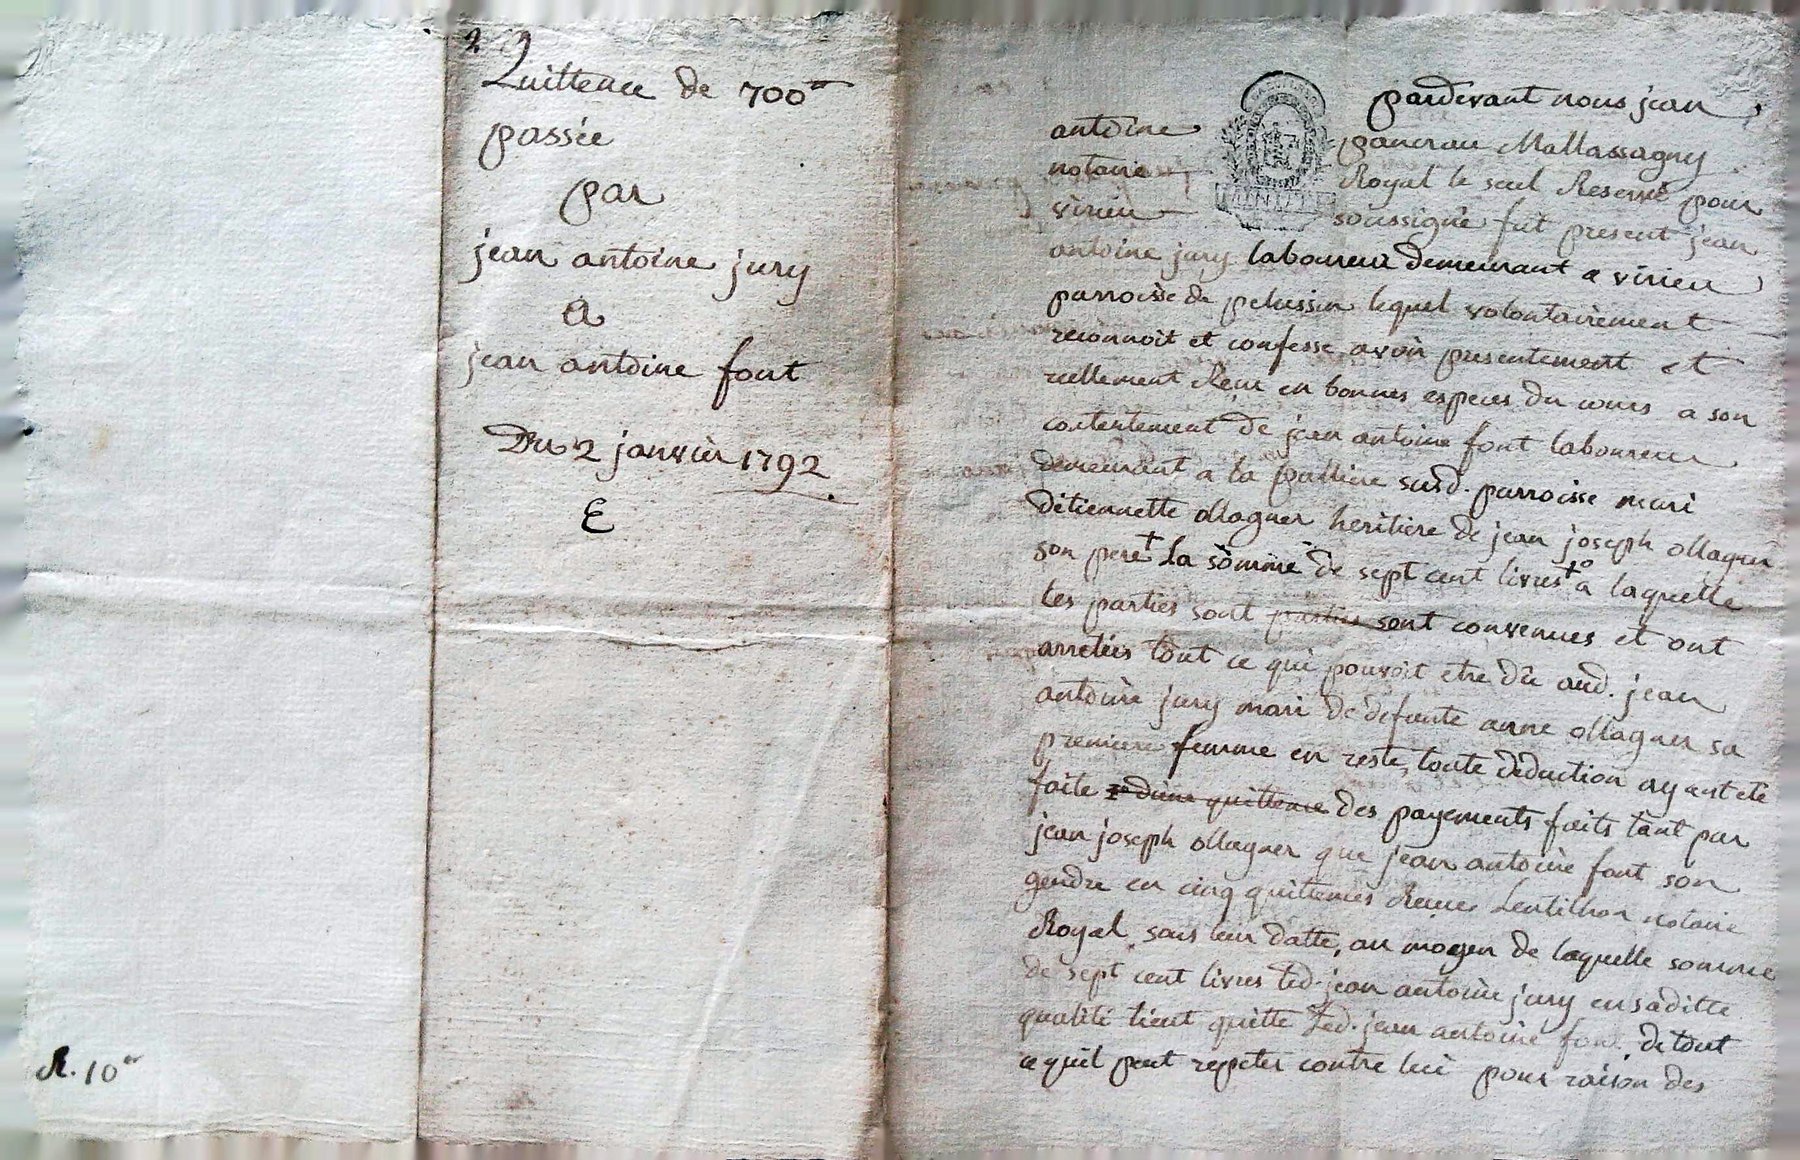 2
Quittence de 700tt
passée
par
jean antoine jury
a
jean antoine font
Du 2 janvier 1792
E
R. 10tt
pardevant nous jean
antoine pancrau Mallassagny
notaire Royal le seul Reservé pour
virieu soussigné fut present jean
antoine jury laboureur demeurant a virieu
parroisse de pelussin lequel volontairement
reconnoit et confesse avoir presentement et
reellement Reçu en bonnes especes du cours a son
contentement de jean antoine font laboureur
demeurant a la susd. parroisse mari
détiennette ollagner heritiere de jean joseph ollagner
son pere + la somme de sept cent livres +o a laquelle
les parties sont parties sont convenues et ont
arretées tout ce qui pouvoit etre dû aud. jean
antoine jury mari de defunte anne ollagner sa
premiere femme en reste, toute deduction ayant eté
faite d'une quittence des payements faits tant par
jean joseph ollagner que jean antoine font son
gendre en cinq quittences Reçues Lentillon notaire
Royal sous leur datte, au moyen de laquelle somme
de sept cent livres led. jean antoine jury en saditte
qualité tient quitte led. jean antoine font de tout
ce quil peut repeter contre lui pour raison des